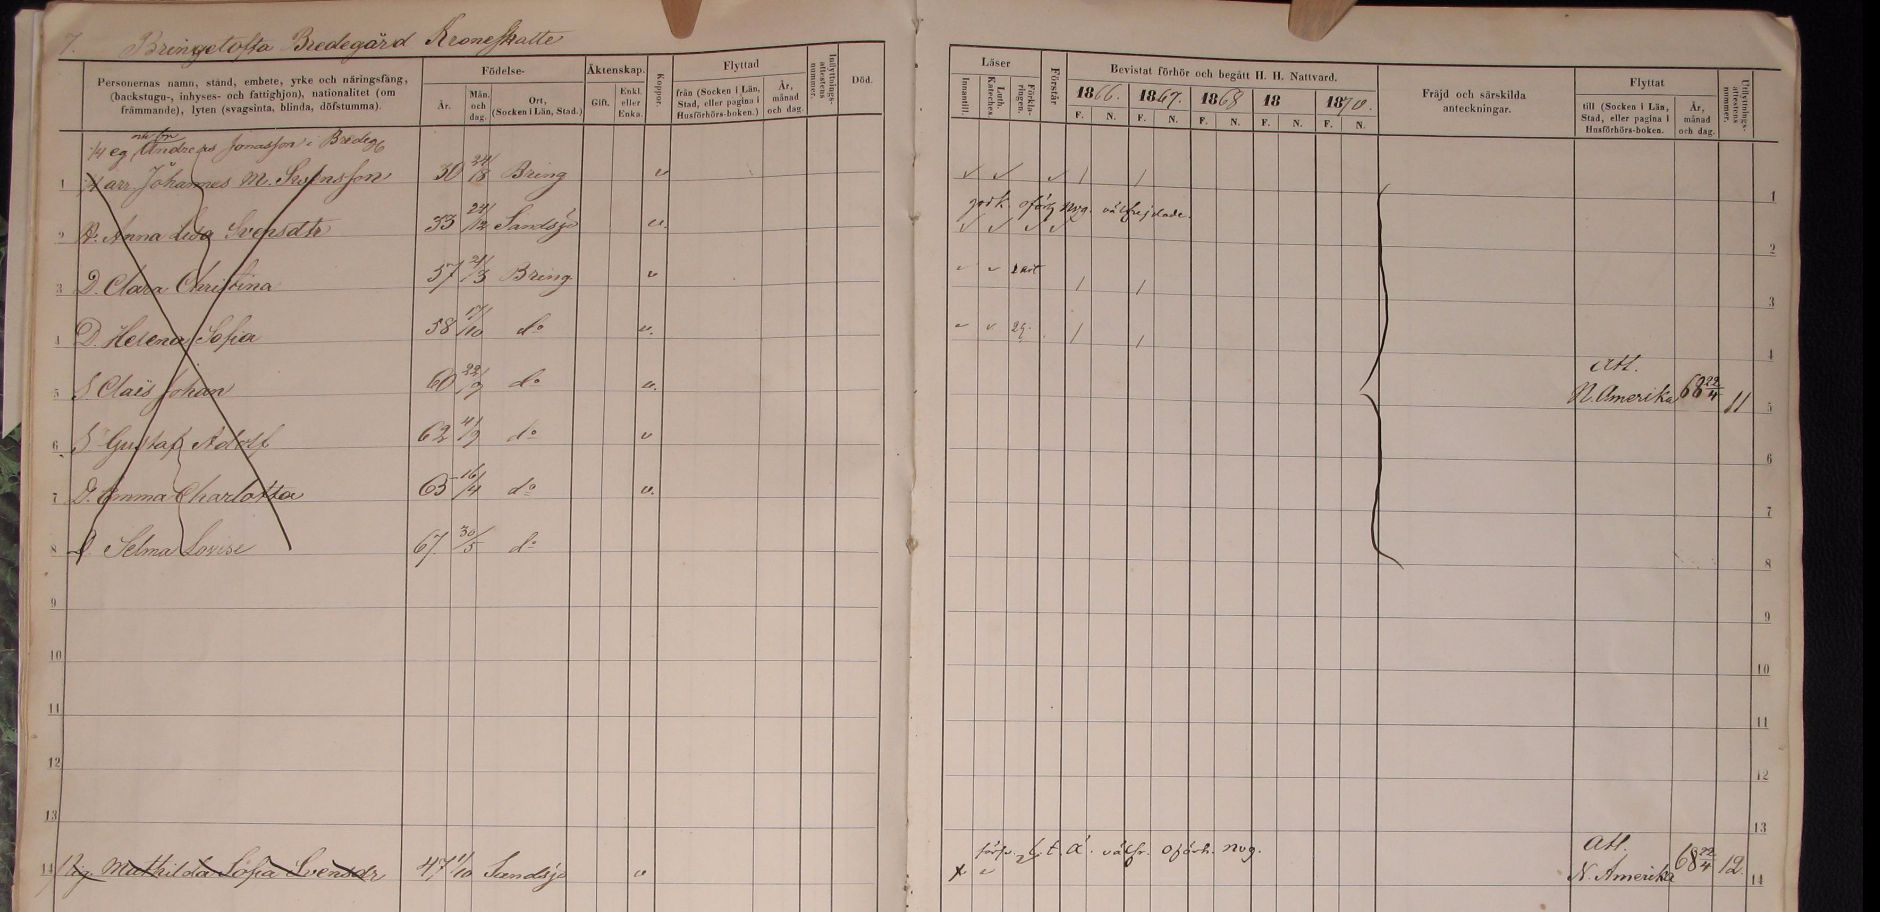 7. Bringetofta Bredegärd Kroneskatte
Personernas namn, stånd, embete, yrke och näringsfång, (backstugu-, inhyses- och fattighjon), nationalitet (om främmande), lyten (svagsinta, blinda, döfstumma).
Födelse-
År.
Mån. och dag.
Ort, (Socken i Län, Stad.)
Äktenskap.
Gift.
Enkl. eller Enka.
Koppor.
Flyttad
från (Socken i Län, Stad, eller pagina i Husförhörs-boken.)
År, månad och dag.
Inflyttnings-attestens nummer.
Död.
Läser
Innantill.
Luth. Kateches.
Förkla-ringen.
Förstår
Bevistat förhör och begått H. H. Nattvard.
1866. 1867. 1868 18 1870.
F. N. F. N. F. N. F. N. F. N.
Fräjd och särskilda anteckningar.
Flyttat
till (Socken i Län, Stad, eller pagina i Husförhörs-boken.
År, månad och dag.
Utflyttnings-attestens nummer.
1/4 eg. Andreas Jonasson i Bredeg
1 arr. Johannes M. Svensson 30 24/8 Bring v 1
godk. oförh. nog. välfrejdade.
2 Anna Lisa Svensdtr 33 24/12 Sandsjö v. 2
3 D. Clara Christina 57 21/3 Bring v 3
4 D. Helena Sofia 58 17/10 do v. 4
Att.
5 S. Claës Johan 60 22/9 do v. N. Amerika 68 22/4 11 5
6 S. Gustaf Adolf 62 4/9 do v 6
7 D. Emma Charlotta 65 16/4 do v. 7
8 D. Selma Lovise 67. 30/5 do 8
9 9
10 10
11 11
12 12
13 13
välfr. oförh. nog. Att.
14 Pig. Mathilda Sofia Svensdr 47 1/10 Sandsjö v N. Amerika 68 22/4 12. 14